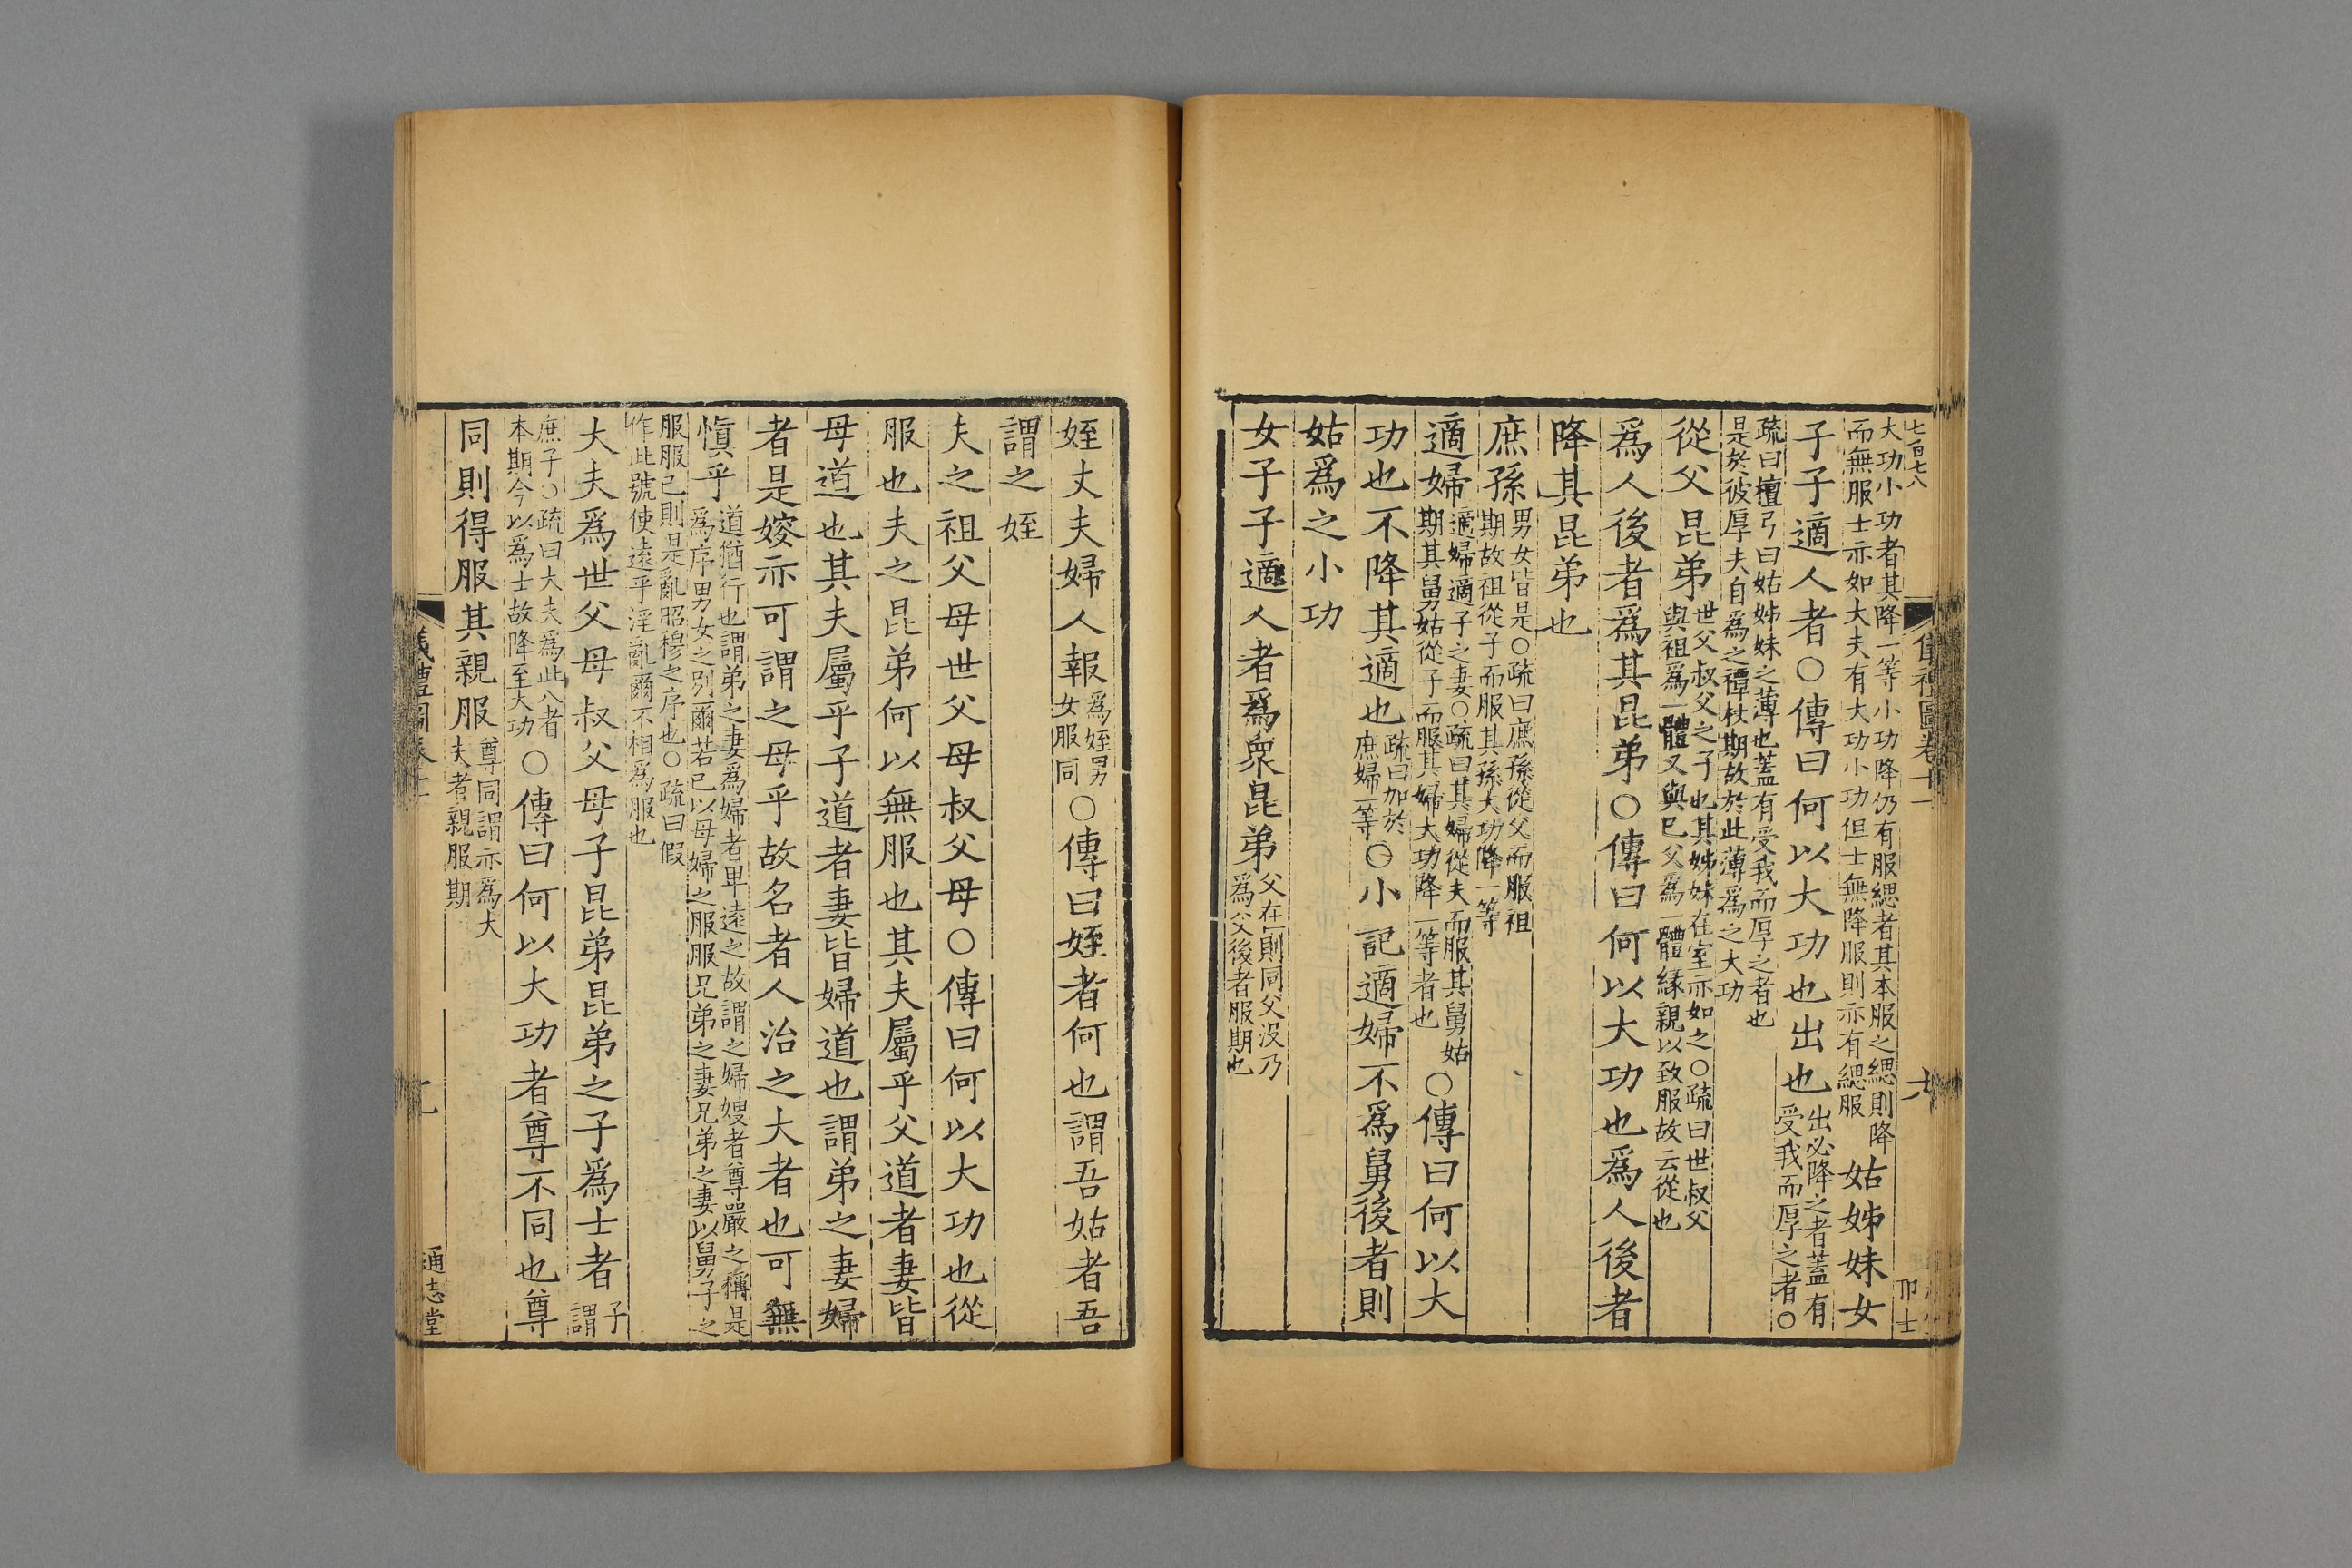 七百七八
大功小功者其降一等小功降仍有服緦者其本服之緦則降
而無服士亦如大夫有大功小功但士無降服則亦有緦服
姑姊妹女
子子適人者○傳曰何以大功也出也
出必降之者蓋有
受我而厚之者○
疏曰檀弓曰姑姊妹之薄也蓋有受我而厚之者也
是於彼厚夫自爲之禫杖期故於此薄爲之大功
從父昆弟
世父叔父之子也其姊妹在室亦如之○疏曰世叔父
與祖爲一體又與己父爲一體緣親以致服故云從也
爲人後者爲其昆弟○傳曰何以大功也爲人後者
降其昆弟也
庶孫
男女皆是○疏曰庶孫從父而服祖
期故祖從子而服其孫大功降一等
適婦
適婦適子之妻○疏曰其婦從夫而服其舅姑
期其舅姑從子而服其婦大功降一等者也
○傳曰何以大
功也不降其適也
疏曰加於
庶婦一等
○小記適婦不爲舅後者則
姑爲之小功
女子子適人者爲衆昆弟
父在則同父没乃
爲父後者服期也
姪丈夫婦人報
爲姪男
女服同
○傳曰姪者何也謂吾姑者吾
謂之姪
夫之祖父母世父母叔父母○傳曰何以大功也從
服也夫之昆弟何以無服也其夫屬乎父道者妻皆
母道也其夫屬乎子道者妻皆婦道也謂弟之妻婦
者是嫂亦可謂之母乎故名者人治之大者也可無
愼乎
道猶行也謂弟之妻爲婦者卑遠之故謂之婦嫂者尊嚴之稱是
爲序男女之別爾若己以母婦之服服兄弟之妻兄弟之妻以舅子之
服服己則是亂昭穆之序也○疏曰假
作此號使遠乎淫亂爾不相爲服也
大夫爲世父母叔父母子昆弟昆弟之子爲士者
子
謂
庶子○疏曰大夫爲此八者
本期今以爲士故降至大功
○傳曰何以大功者尊不同也尊
同則得服其親服
尊同謂亦爲大
夫者親服期
通志堂